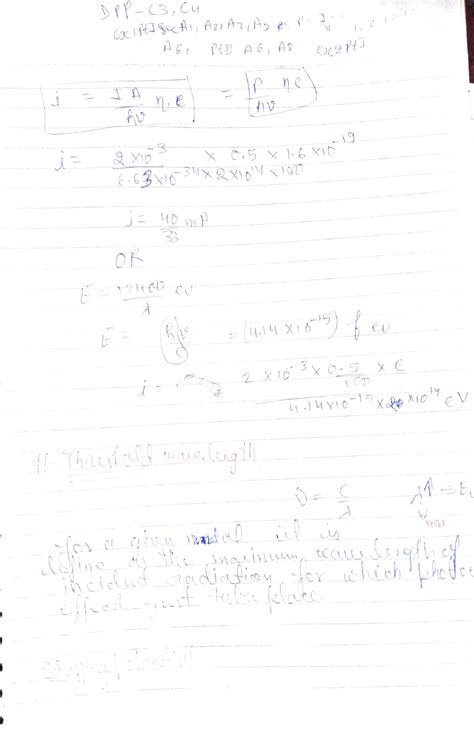 DPP-C3, C4
A6, PtII A6, A8 Ex2PtI
i = IA/hν η.e = P/hν ηe
i = 2×10^-3/6.63×10^-34×2×10^14×100 × 0.5×1.6×10^-19
i = 40/33 mA
OR
E = 12400/λ ev
E = = (4.14×10^-15) f ev
i = 2×10^-3×0.5/100 × e
4.14×10^-15 × ×10^14 eV
# Threshold wavelength
ν = c/λ λ↑ →
max
for a given metal it is
define as the maximum wavelength of
incident radiation for which photo
effect just take place.